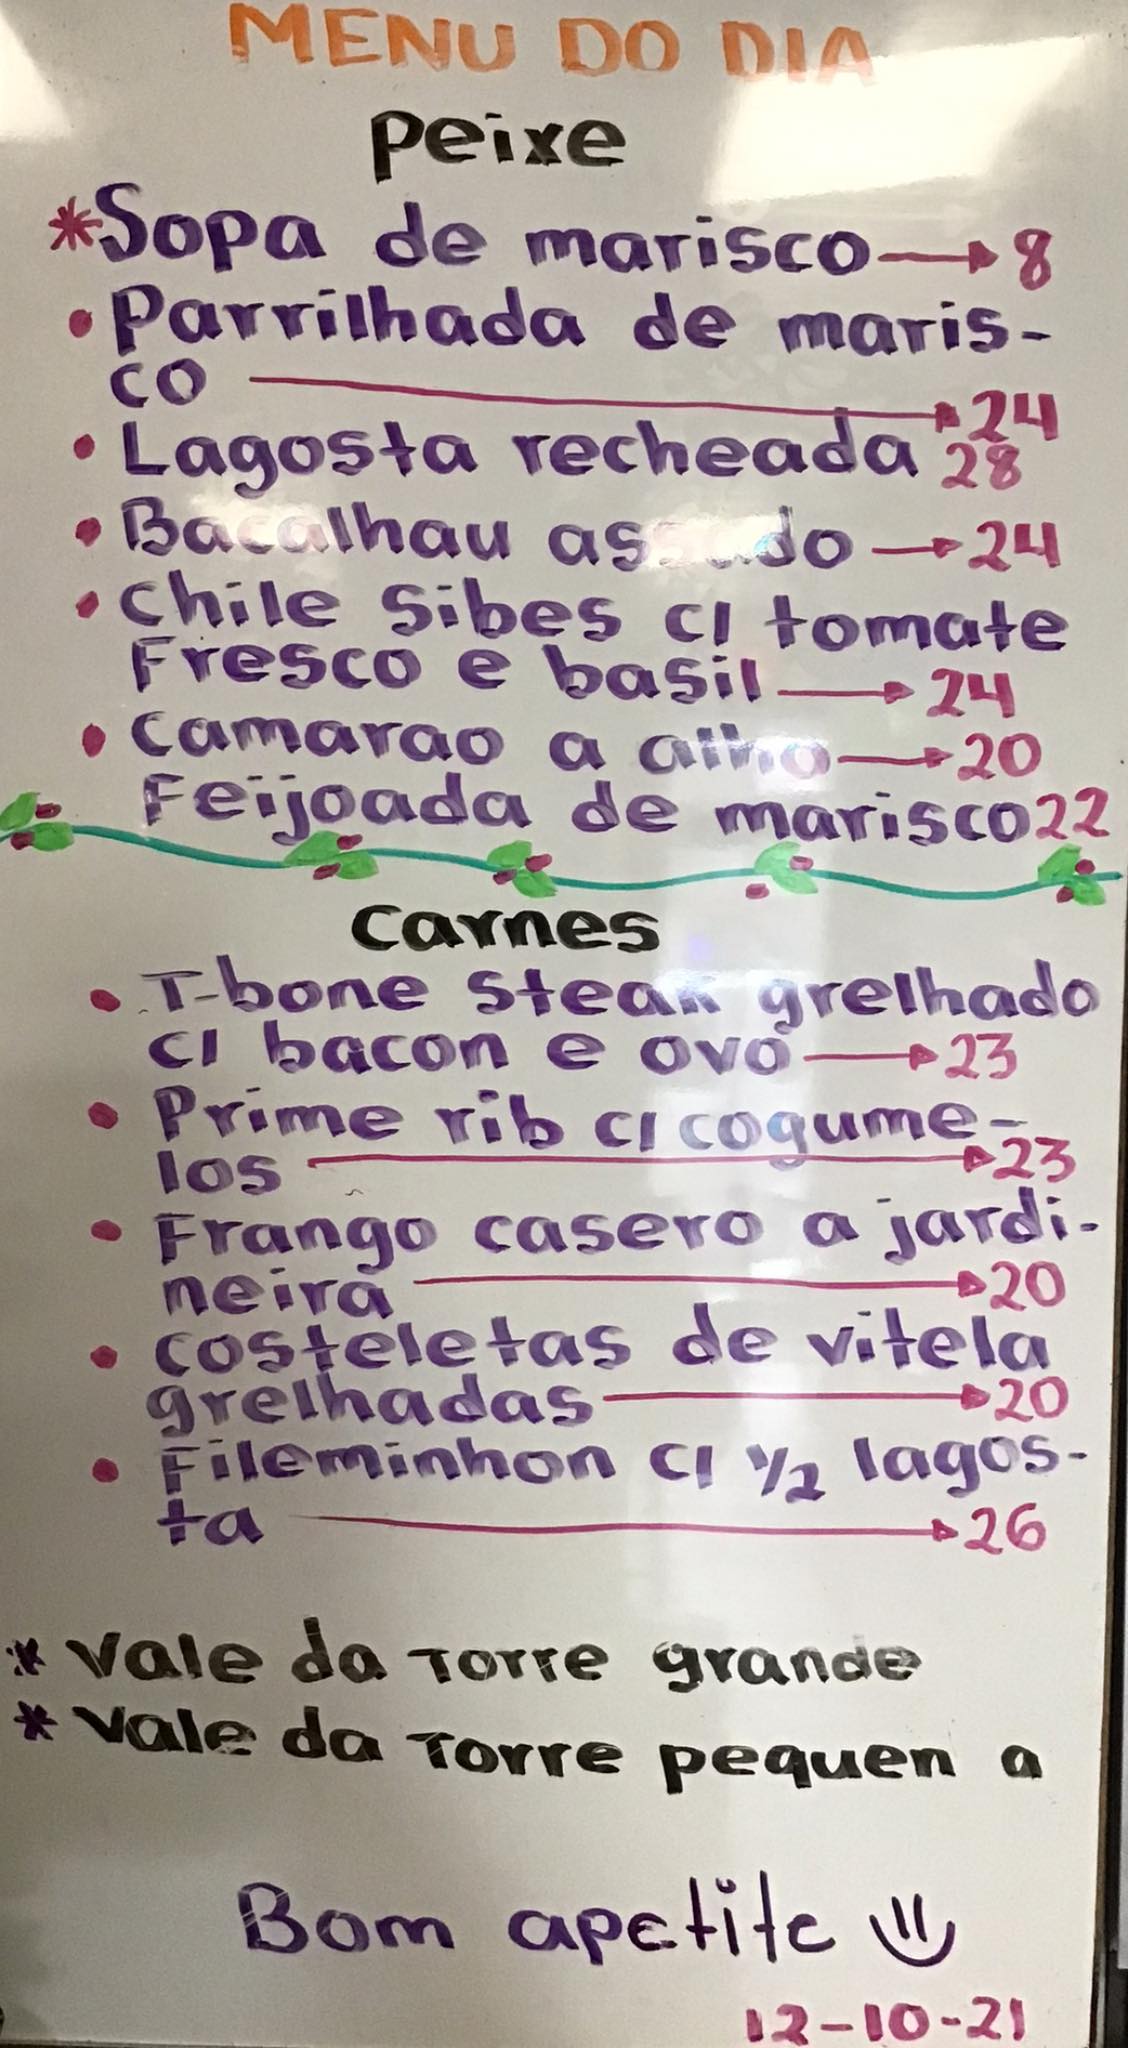 MENU DO DIA
Peixe
*Sopa de marisco → 8
• Parrilhada de maris-
co → 24
• Lagosta recheada 28
• Bacalhau assado → 24
• Chile Sibes c/ tomate
Fresco e basil → 24
• Camarao a alho → 20
Feijoada de marisco 22
Carnes
• T-bone Steak grelhado
c/ bacon e ovo → 23
• Prime rib c/ cogume-
los → 23
• Frango casero a jardi-
neira → 20
• costeletas de vitela
grelhadas → 20
• Fileminhon c/ 1/2 lagos-
ta → 26
* Vale da Torre grande
* Vale da Torre pequen a
Bom apetite
12-10-21